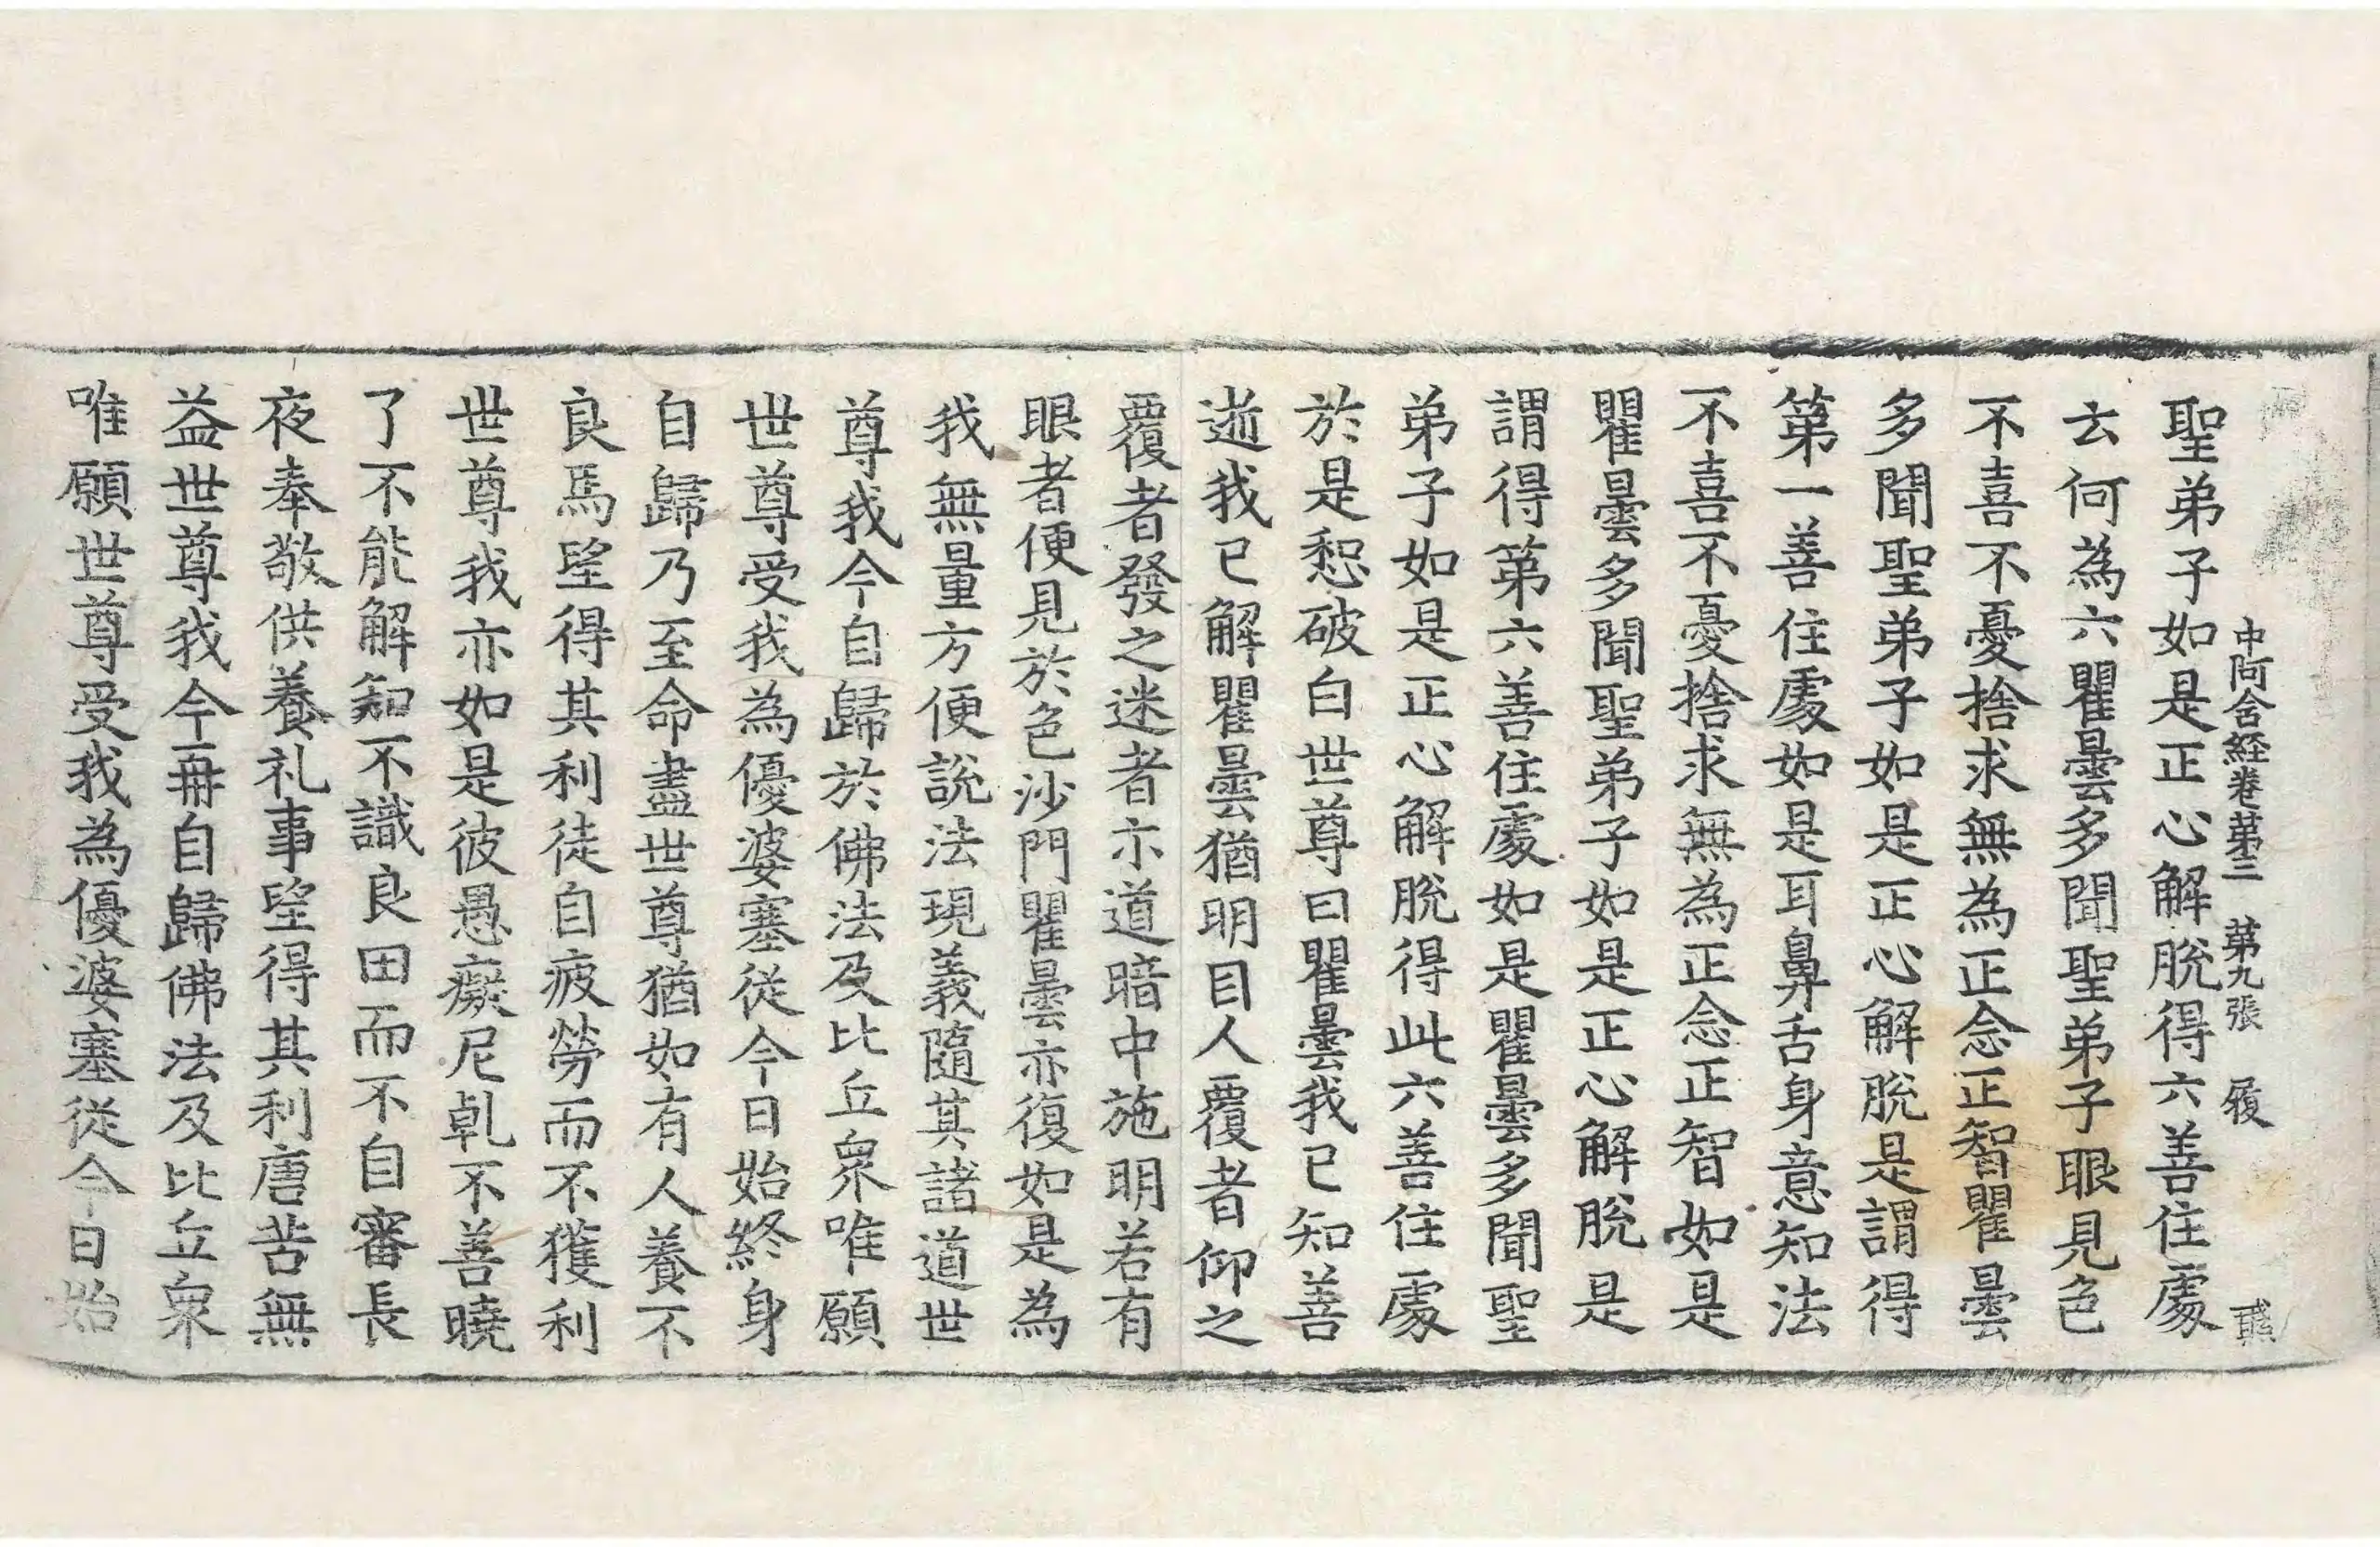 中阿含経卷第三 第九張 履
聖弟子如是正心解脫得六善住處
去何為六瞿曇多聞聖弟子眼見色
不喜不憂捨求無為正念正智瞿曇
多聞聖弟子如是正心解脫是謂得
第一善住處如是耳鼻舌身意知法
不喜不憂捨求無為正念正智如是
瞿曇多聞聖弟子如是正心解脫是
謂得第六善住處如是瞿曇多聞聖
弟子如是正心解脫得此六善住處
於是惒破白世尊曰瞿曇我已知善
逝我已解瞿曇猶明目人覆者仰之
覆者發之迷者示道暗中施明若有
眼者便見於色沙門瞿曇亦復如是為
我無量方便說法現義隨其諸道世
尊我今自歸於佛法及比丘衆唯願
世尊受我為優婆塞從今日始終身
自歸乃至命盡世尊猶如有人養不
良馬望得其利徒自疲勞而不獲利
世尊我亦如是彼愚癡尼乹不善曉
了不能解知不識良田而不自審長
夜奉敬供養礼事望得其利唐苦無
益世尊我今再自歸佛法及比丘衆
唯願世尊受我為優婆塞從今日始